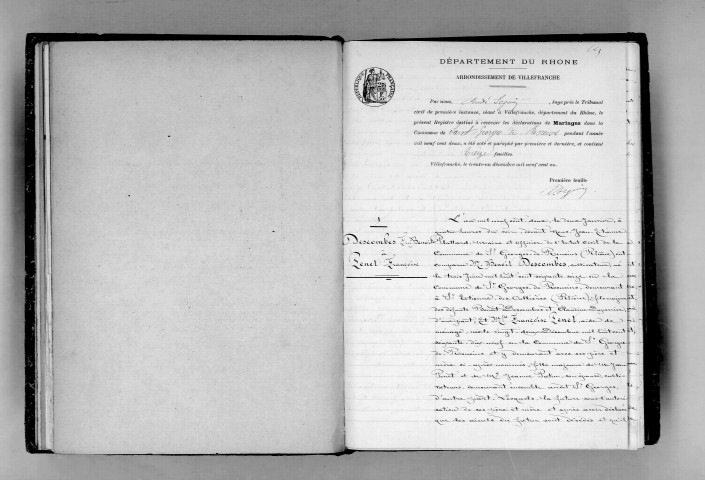 DÉPARTEMENT DU RHONE
ARRONDISSEMENT DE VILLEFRANCHE
Par nous, Juge près le Tribunal
civil de première instance, séant à Villefranche, département du Rhône, le
présent Registre destiné à recevoir les déclarations de Mariages dans la
Commune de Saint Georges de Reneins pendant l'année
mil neuf cent deux, a été coté et paraphé par première et dernière, et contient
treize feuilles.
Villefranche, le trente-un décembre mil neuf cent un.
Première feuille
1
Descombes Benoit
à
Penet Françoise
L'an mil neuf cent deux, le deux Janvier, à
quatre heures du soir, devant Nous, Jean Etienne
maire et officier de l'état civil de la
Commune de St Georges de Reneins (Rhône) ont
comparu Mr Benoit Descombes, né
le trois Juin mil huit cent soixante seize en la
Commune de St Georges de Reneins, demeurant
à St Etienne des Oullières (Rhône)
des défunts Benoit Descombes et Claudine
d'une part, Et Mlle Françoise Penet, aide de
ménage, née le vingt deux Décembre mil huit cent
soixante dix neuf en la Commune de St Georges
de Reneins et y demeurant avec ses père et
mère ci-après nommés, fille majeure de Mr Jean
Penet et de Me Jeanne
demeurant ensemble audit St Georges,
d'autre part. Lesquels, la future sous l'autori-
sation de ses père et mère et après avoir déclaré
que les aïeuls du futur sont décédés et qu'il